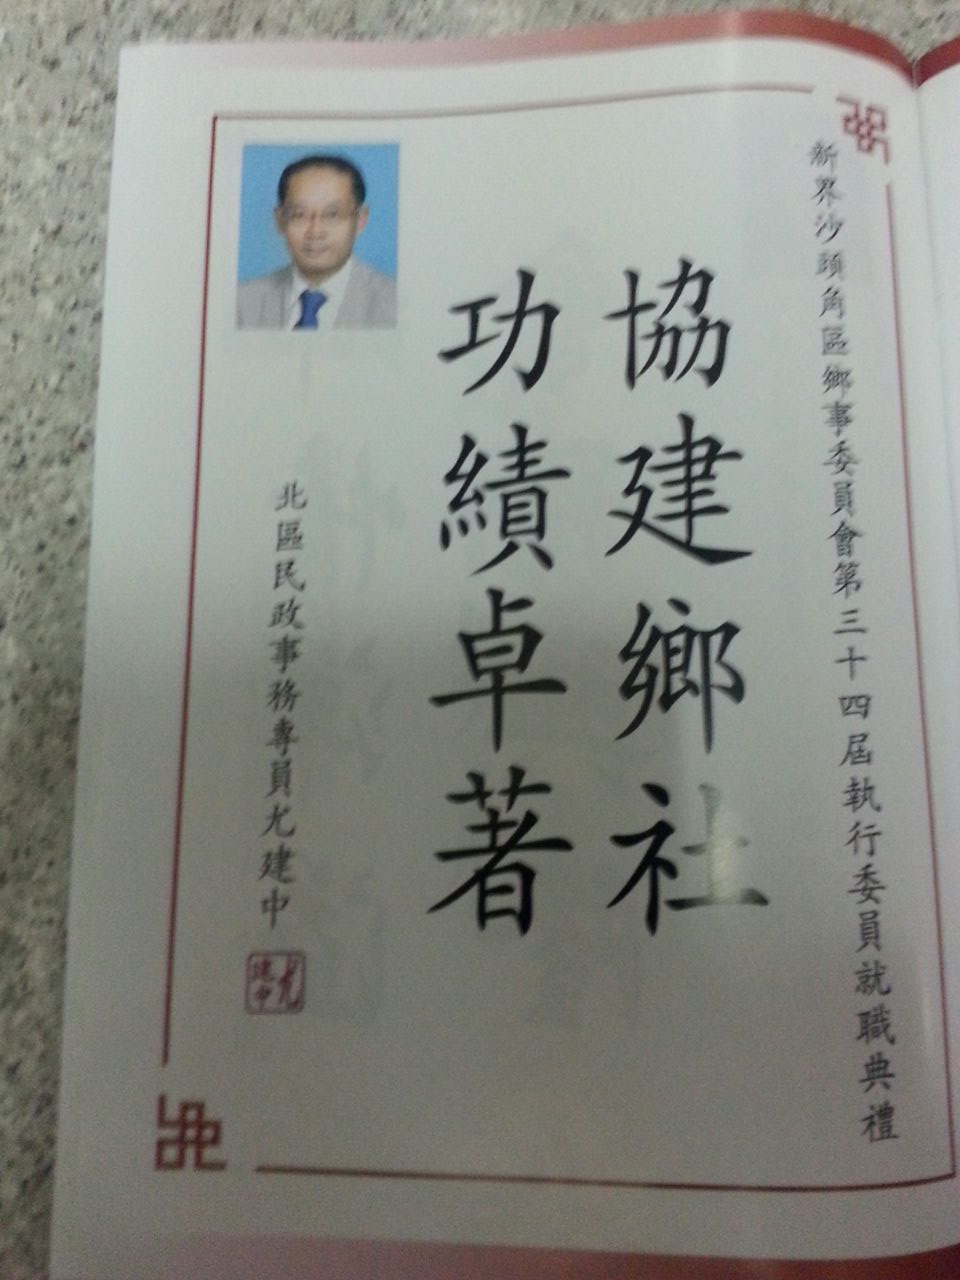 新界沙頭角區鄉事委員會第三十四屆執行委員就職典禮
協建鄉社
功績卓著
北區民政事務專員尤建中
尤建中